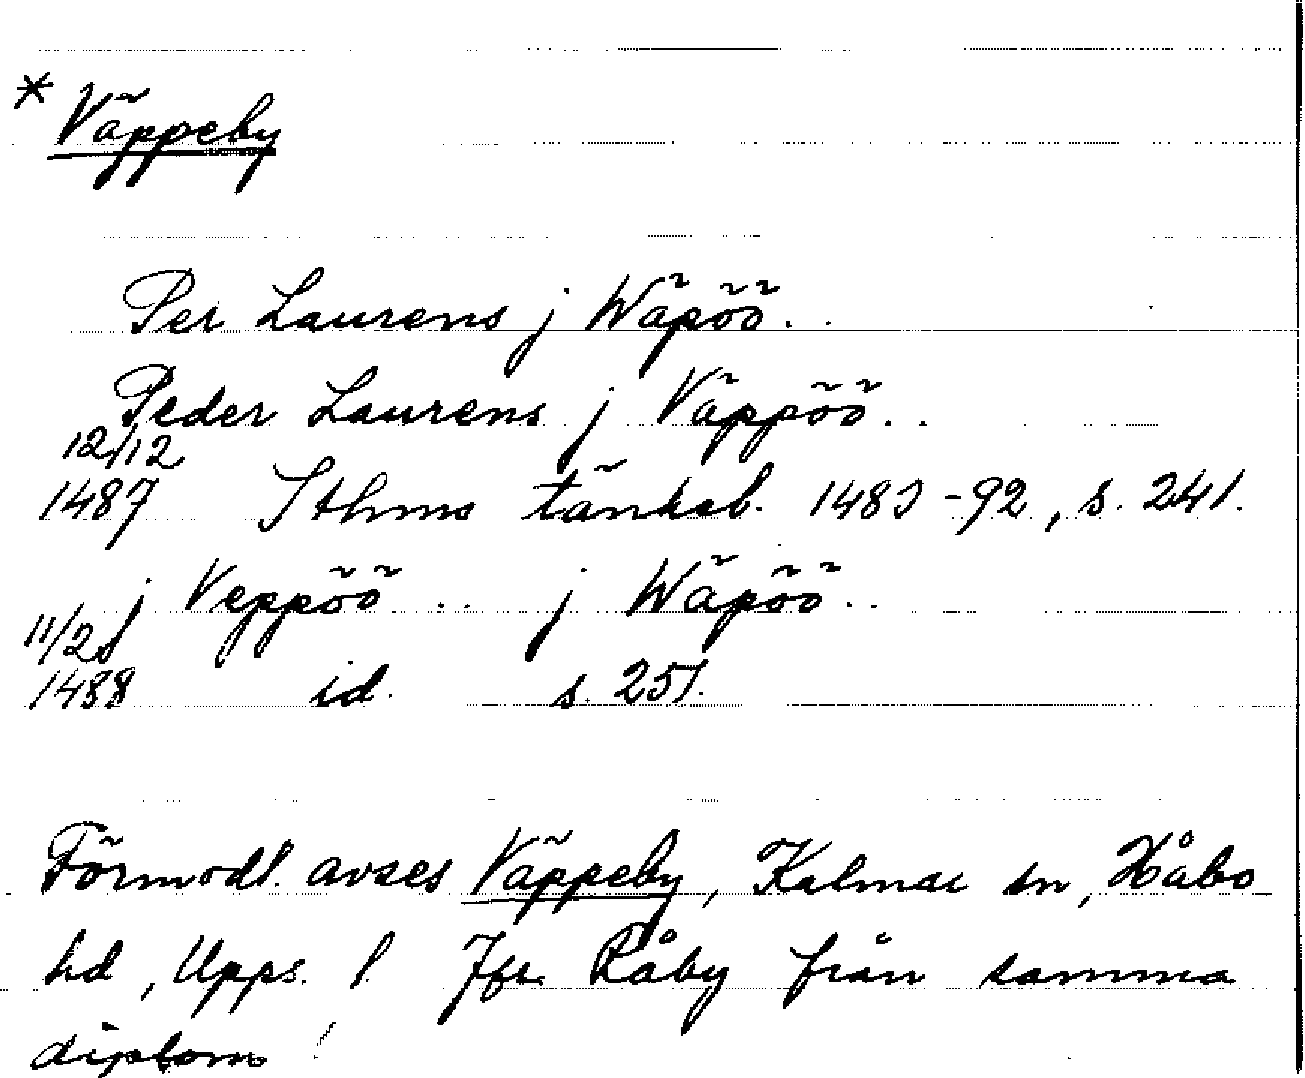 * Väppeby
Per Laurens j Wäpöö..
Peder Laurens j Väppöö..
12/12
1487 Sthms tänkeb. 1483-92, s. 241.
j Veppöö .. j Wäpöö..
11/2
1488 id. s. 251.
Förmodl. avses Väppeby, Kalmar sn, Håbo
hd, Upps. l. Jfr. Råby från samma
diplom!